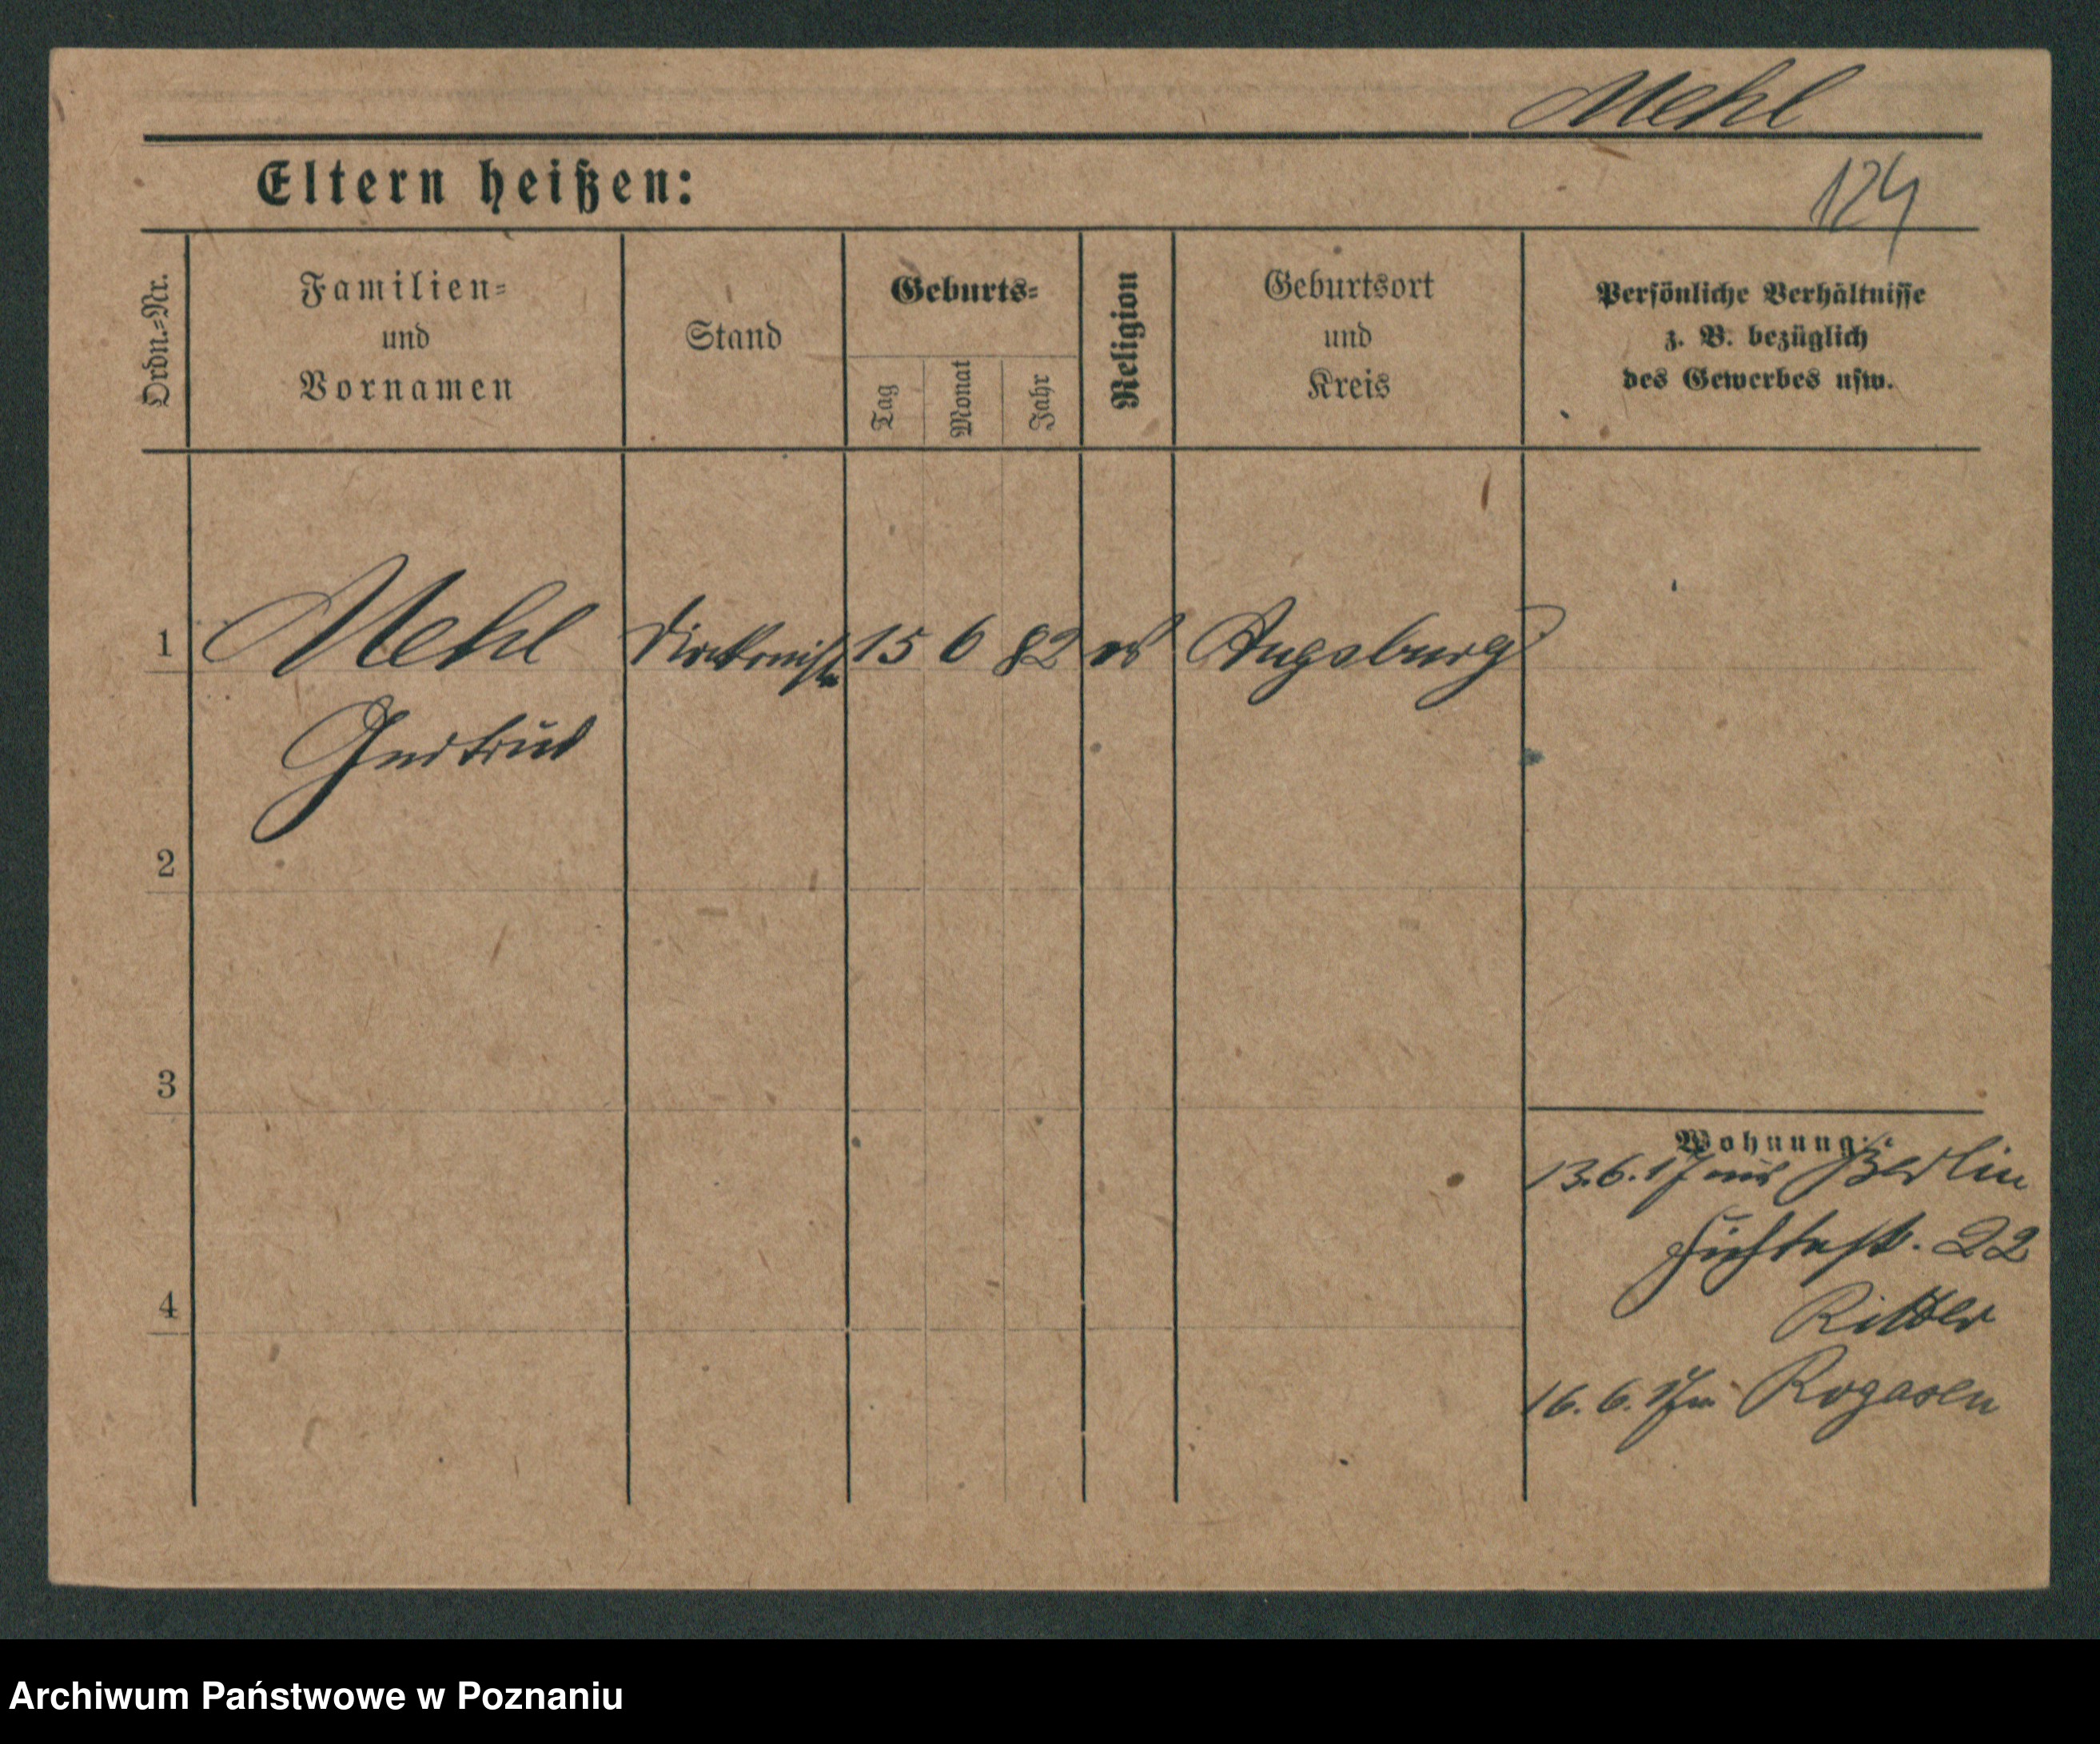 Mehl
124
Eltern heißen:
Ordn.=Nr.
Familien=
und
Vornamen
Stand
Geburts=
Tag
Monat
Jahr
Religion
Geburtsort
und
Kreis
Persönliche Verhältnisse
z. B. bezüglich
des Gewerbes usw.
1
Mehl
Diakonisse
15
6
82
ev
Augsburg
Gertrud
2
3
4
Wohnung:
13.6.17 aus Berlin
Fichtestr. 22
Ritter
16.6.17 Rogasen
Archiwum Państwowe w Poznaniu